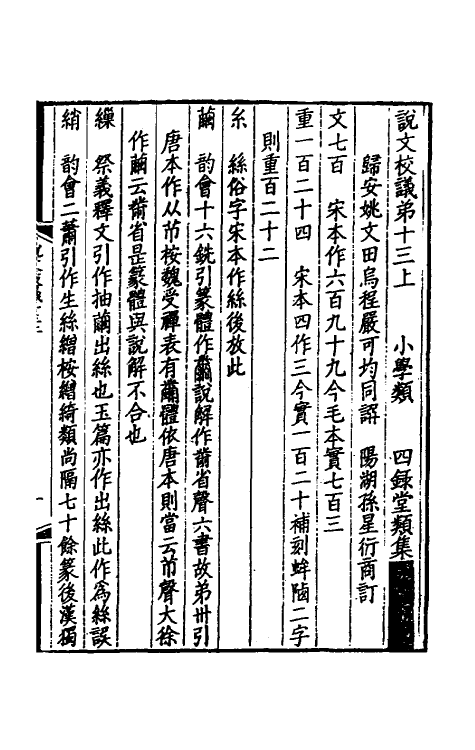 說文校議弟十三上　小學類　四錄堂類集
歸安姚文田烏程嚴可均同譔　陽湖孫星衍商訂
文七百　宋本作六百九十九今毛本實七百三
重一百二十四　宋本四作三今實一百二十補刻蛑䧟二字
則重百二十二
糸　絲俗字宋本作絲後放此
繭　韵會十六銑引篆體作繭說解作黹省聲六書故弟卅引
唐本作从芇桉魏受禪表有繭體依唐本則當云芇聲大徐
作繭云黹省是篆體與說解不合也
繅　祭義釋文引作抽繭出絲也玉篇亦作出絲此作爲絲誤
綃　韵會二蕭引作生絲繒桉繒綺類尚隔七十餘篆後漢獨